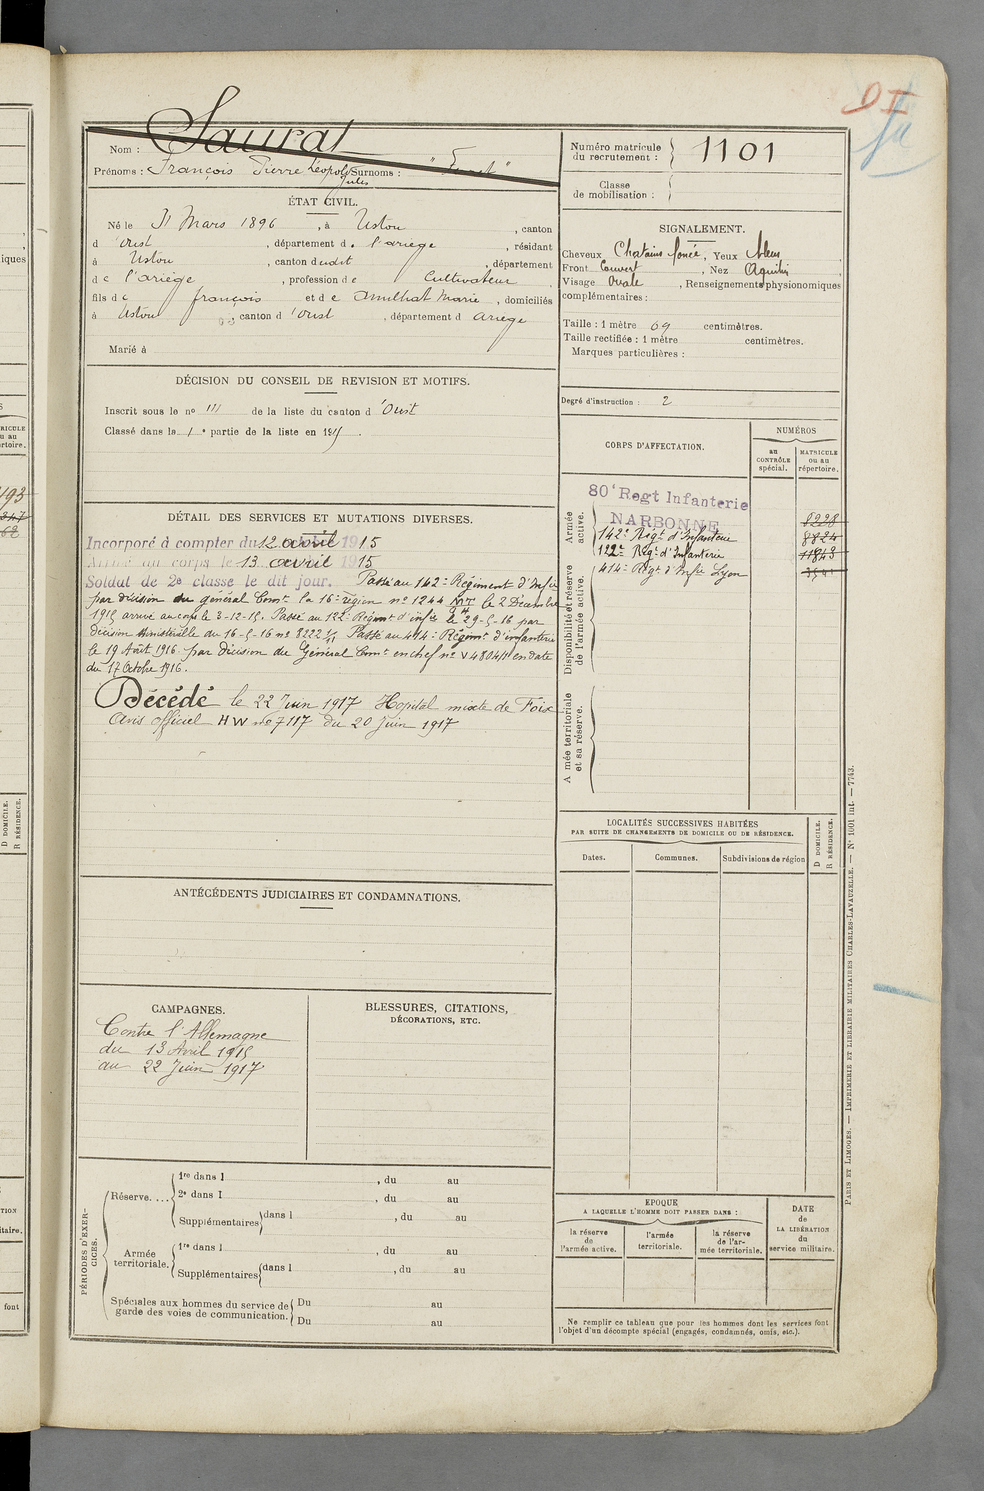 Nom : Saurat
Prénoms : François Pierre Léopold Jules Surnoms :
ÉTAT CIVIL.
Né le 31 Mars 1896, à Ustou, canton
d'Oust, département de l'ariège, résidant
à Ustou, canton dudit, département
de l'ariège, profession de Cultivateur
fils de françois et de Amilhat Marie, domiciliés
à Ustou, canton d'Oust, département d ariège
Marié à
DÉCISION DU CONSEIL DE REVISION ET MOTIFS.
Inscrit sous le no 111 de la liste du canton d'Oust
Classé dans la 1e partie de la liste en 1915.
DÉTAIL DES SERVICES ET MUTATIONS DIVERSES.
Incorporé à compter du 12 avril 1915
Arrivé au corps le 13 avril 1915
Soldat de 2e classe le dit jour. Passé au 142e Régiment d'Infie
par décision du général Comt la 16e région no 1244 le 2 Décembre
1915 arrivé au corps le 3-12-15. Passé au 122e Régiment d'infie le 29-5-16 par
décision Ministérielle du 16-5-16 no 8222 1/11 Passé au 414e Régimt d'infanterie
le 19 Août 1916 par décision du Général Comt en chef no V 4804/11 en date
du 17 Octobre 1916.
Décédé le 22 Juin 1917 Hopital mixte de Foix
avis officiel HW no 7117 du 20 Juin 1917
ANTÉCÉDENTS JUDICIAIRES ET CONDAMNATIONS.
CAMPAGNES.
Contre l'Allemagne
du 13 Avril 1915
au 22 Juin 1917
BLESSURES, CITATIONS,
DÉCORATIONS, ETC.
PÉRIODES D'EXERCICES.
Réserve....
1re dans l , du au
2e dans l , du au
Supplémentaires dans l , du au
Armée territoriale.
1re dans l , du au
Supplémentaires dans l , du au
Spéciales aux hommes du service de
garde des voies de communication.
Du au
Du au
Numéro matricule
du recrutement : 1101
Classe
de mobilisation :
SIGNALEMENT.
Cheveux Chatains foncé, Yeux bleus
Front Couvert, Nez Aquilin
Visage Ovale, Renseignements physionomiques
complémentaires :
Taille : 1 mètre 69 centimètres.
Taille rectifiée : 1 mètre centimètres.
Marques particulières :
Degré d'instruction : 2
CORPS D'AFFECTATION.
NUMÉROS
au
CONTRÔLE
spécial.
MATRICULE
ou au
répertoire.
Armée
active.
80e Regt Infanterie
NARBONNE
142e Régt d'Infanterie 8824
122e Régt d'Infanterie 11943
414e Régt d'Infie Lyon
Disponibilité et réserve
de l'armée active.
Armée territoriale
et sa réserve.
LOCALITÉS SUCCESSIVES HABITÉES
PAR SUITE DE CHANGEMENTS DE DOMICILE OU DE RÉSIDENCE.
Dates.
Communes.
Subdivisions de région
D DOMICILE.
R RÉSIDENCE.
EPOQUE
A LAQUELLE L'HOMME DOIT PASSER DANS :
la réserve
de
l'armée active.
l'armée
territoriale.
la réserve
de l'ar-
mée territoriale.
DATE
de
LA LIBÉRATION
du
service militaire.
Ne remplir ce tableau que pour les hommes dont les services font
l'objet d'un décompte spécial (engagés, condamnés, omis, etc.).
PARIS ET LIMOGES. — IMPRIMERIE ET LIBRAIRIE MILITAIRES CHARLES-LAVAUZELLE. — No 1001 int. — 7743.